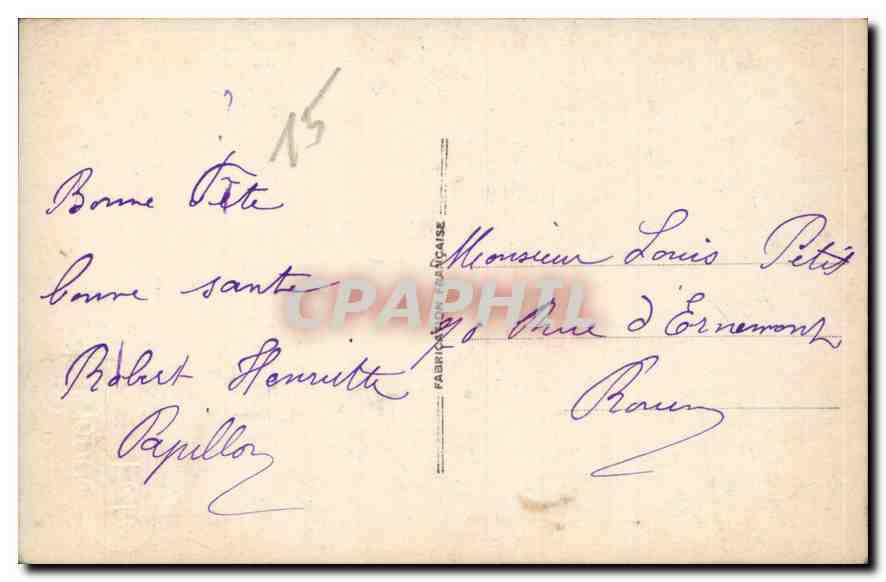 15
Bonne Fête
bonne sante
Robert Henriette
Papillon
FABRICATION FRANÇAISE
CPAPHIL
Monsieur Louis Petit
70 Rue d'Ernemont
Rouen